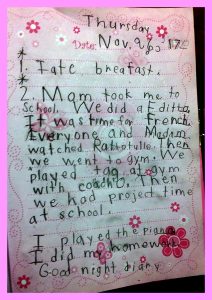 Thursday
Date: Nov.
1. I ate breafast.
2. Mom took me to
School. We did a Editto,
It was time for French.
Everyone and Madam
watched Rattotulle. Then
we went to gym. We
played tag at gym
with coach O. Then
we had project time
at school.
I played the piano
I did my homework
Good night diary